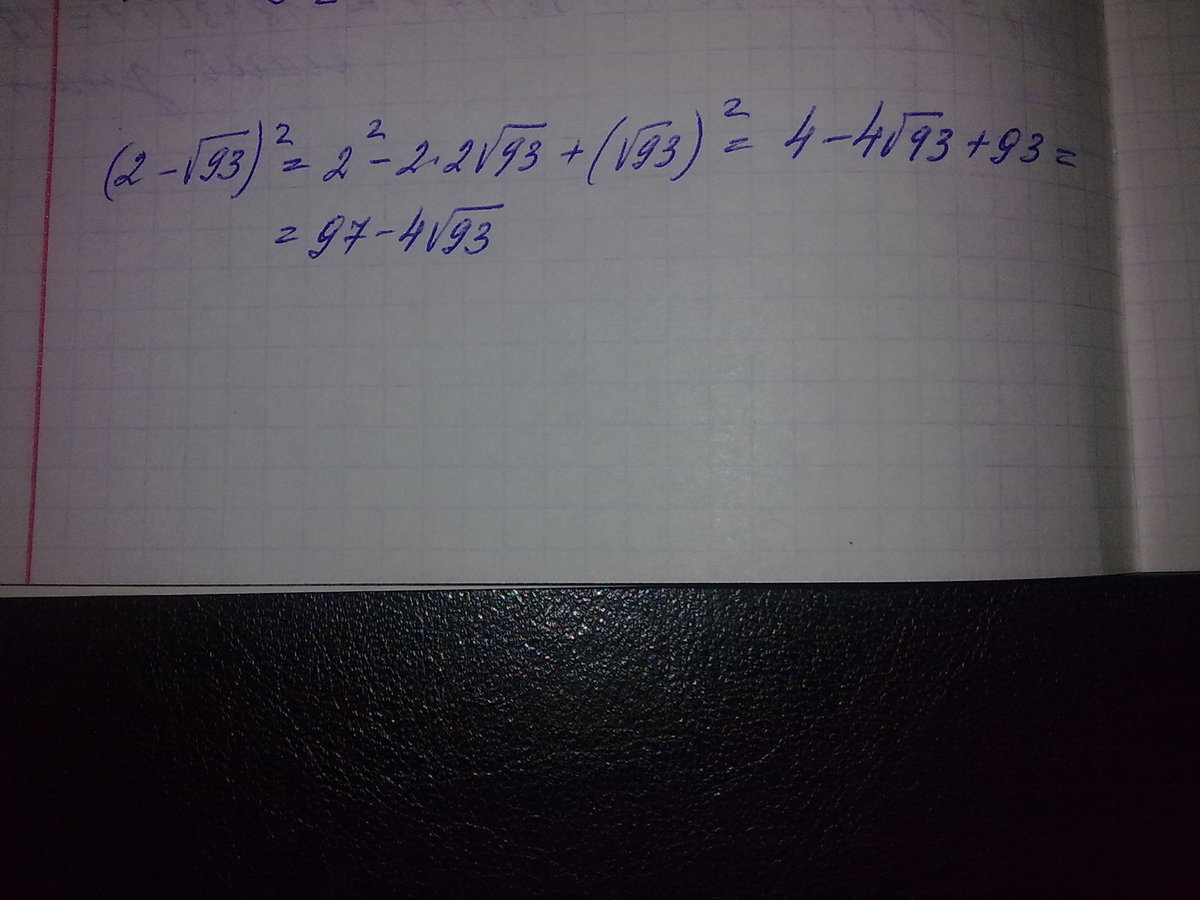 (2-√93)² = 2² - 2·2√93 + (√93)² = 4 - 4√93 + 93 =
= 97 - 4√93